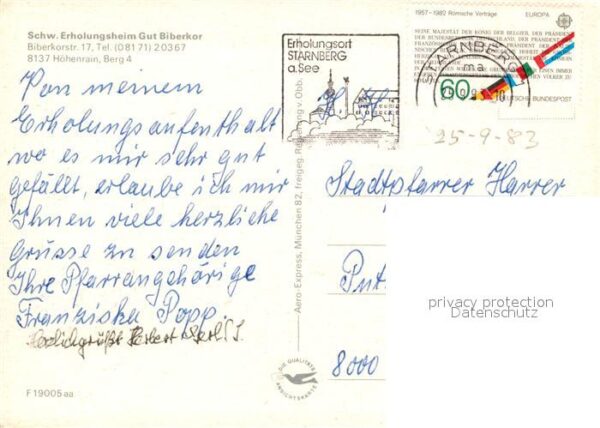 Schw. Erholungsheim Gut Biberkor
Biberkorstr. 17, Tel. (08171) 20367
8137 Höhenrain, Berg 4
Von meinem
Erholungsaufenthalt
wo es mir sehr gut
gefällt, erlaube ich mir
Ihnen viele herzliche
Grüsse zu senden
Ihre Pfarrangehörige
Franziska Popp.
F 19005 aa
Aero-Express, München 82, freigeg. Regierung v. Obb.
DIE QUALITÄTS
ANSICHTSKARTE
Erholungsort
STARNBERG
a. See
STARNBERG
1957-1982 Römische Verträge
EUROPA
60
DEUTSCHE BUNDESPOST
25-9-83
H. H.
Stadtpfarrer Harrer
Put
8000
privacy protection
Datenschutz